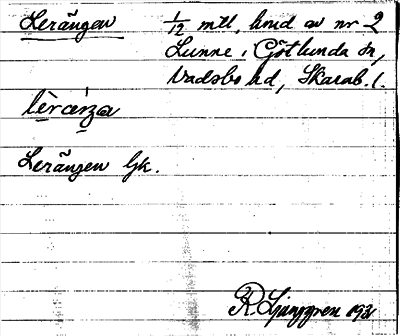 Lerängen 1/12 mtl, hmd av nr 2
Lunne i Götlunda sn,
Vadsbo hd, Skarab. l.
Lerängen Gk.
R. Ljunggren 1931